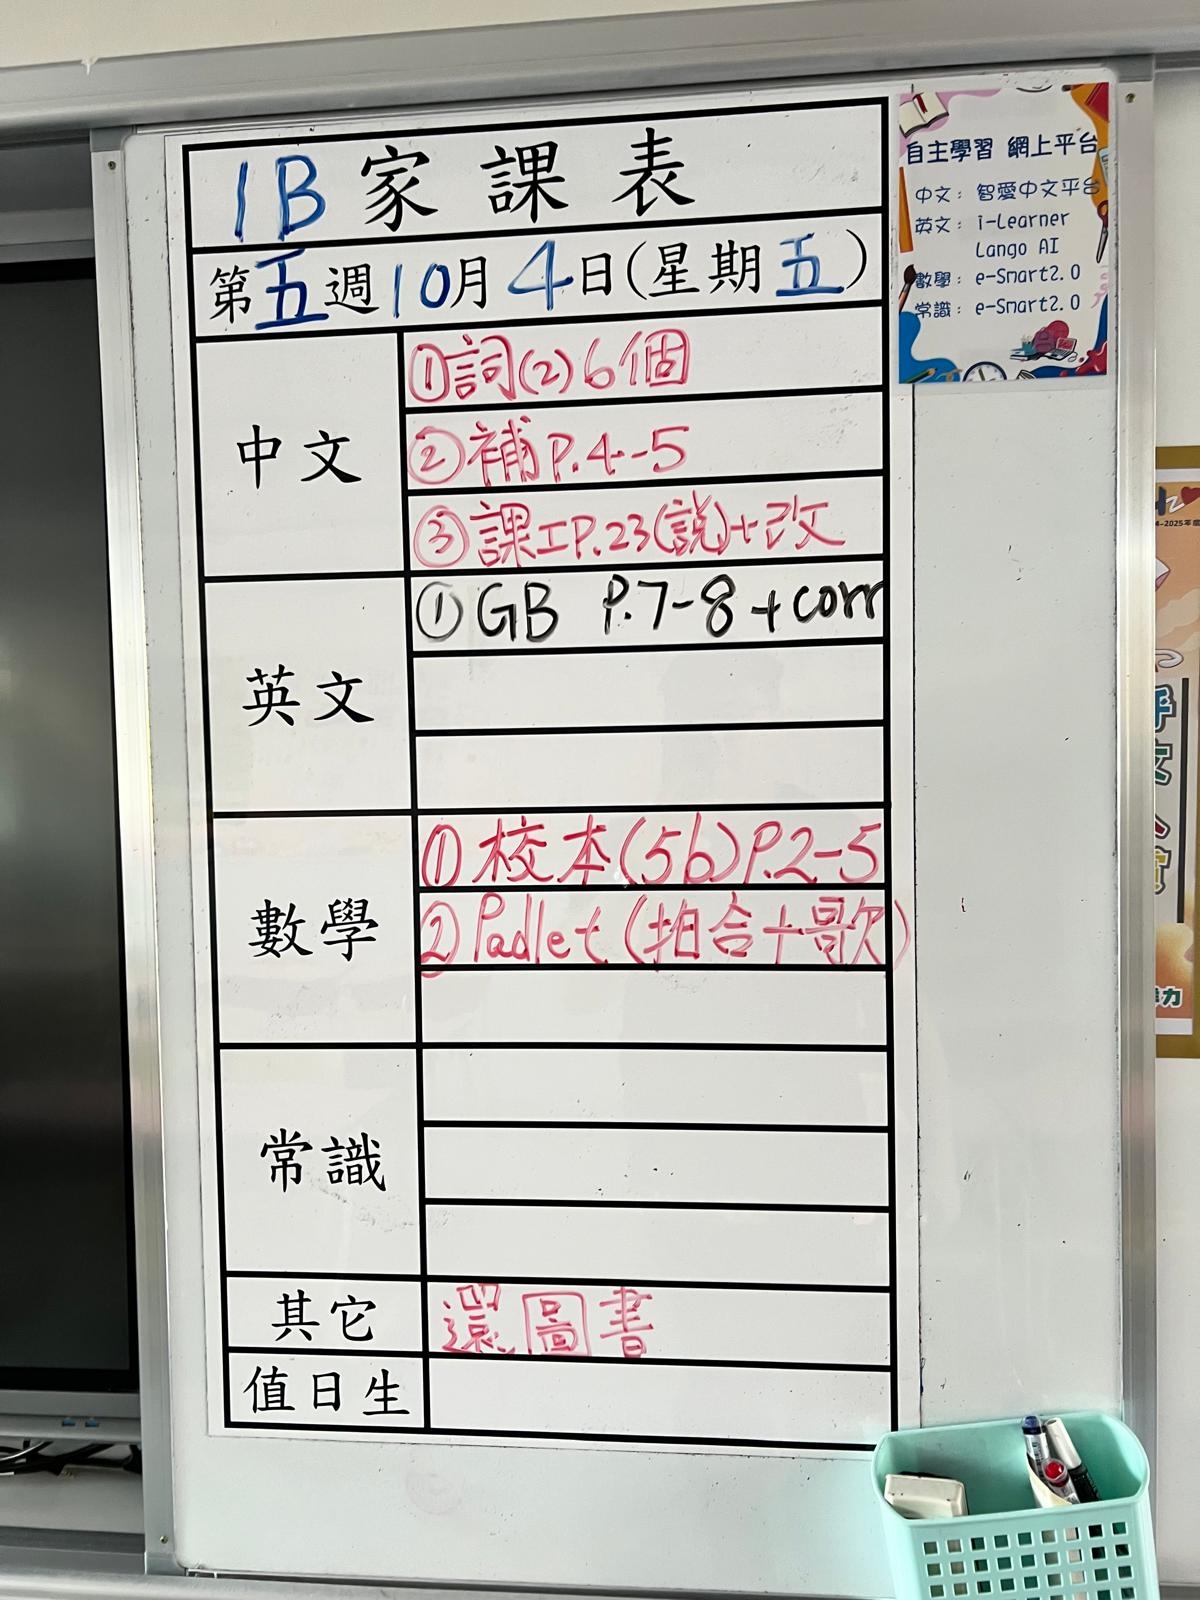 1B 家課表
第五週10月4日(星期五)
中文
①詞(2)6個
②補P.4-5
③課工P.23(説)+改
英文
①GB P.7-8+corr
數學
①校本(5b)P.2-5
②Padlet(拍合十歌)
常識
其它
還圖書
值日生
自主學習 網上平台
中文: 智愛中文平台
英文: i-Learner
Lango AI
數學: e-Smart2.0
常識: e-Smart2.0
4-2025年度